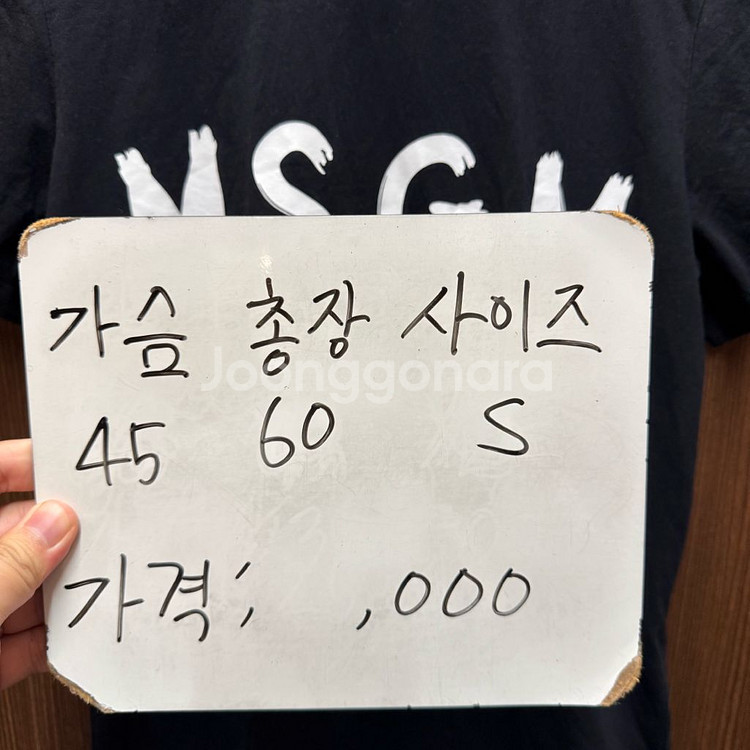 MSGM
가슴 총장 사이즈
Joonggonara
45 60 S
가격; ,000